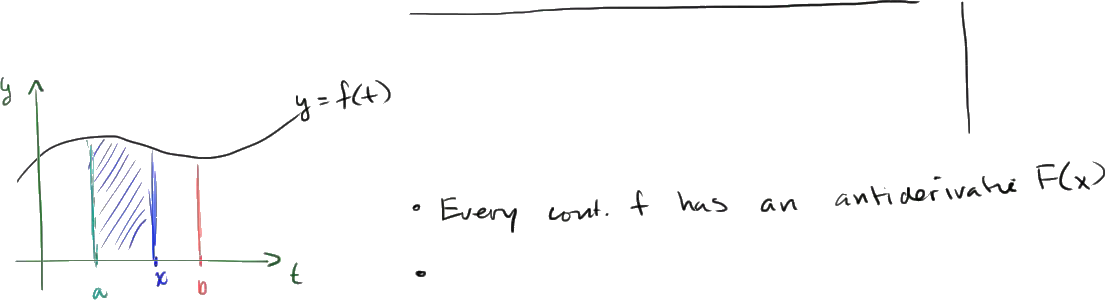 y
y = f(t)
a
x
b
t
• Every cont. f has an antiderivative F(x)
•